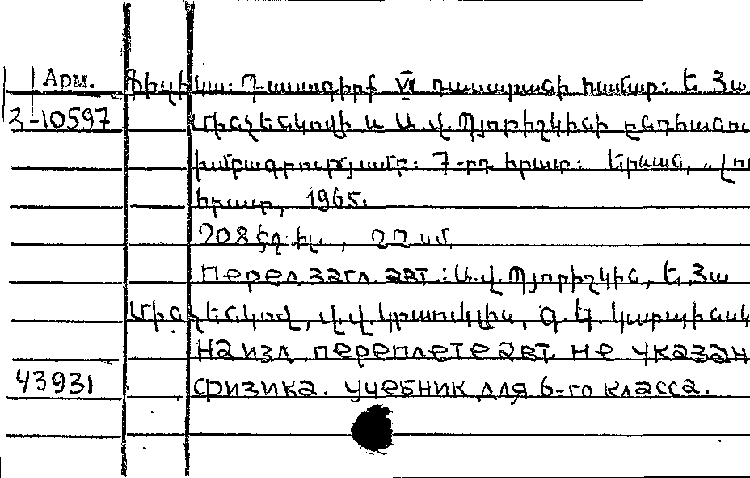 Арм. Ֆիզիկա: Դասագիրք VI դասարանի համար: Ե. Յա
3-10597 Մինչենկովի և Ա. Վ. Պյորիշկինի ընդհանու
խմբագրությամբ: 7-րդ հրատ: Երևան, „ Լու
հրատ, 1965.
208 էջ. իլ., 22 սմ.
Перел. загл. авт.: Ա. Վ. Պյորիշկին, Ե. Յա
Մինչենկով, Վ. Վ. Կրաուկլիս, Գ. Կարապետյան
На изл. переплете авт. не указан
43931 физика. учебник для 6-го класса.